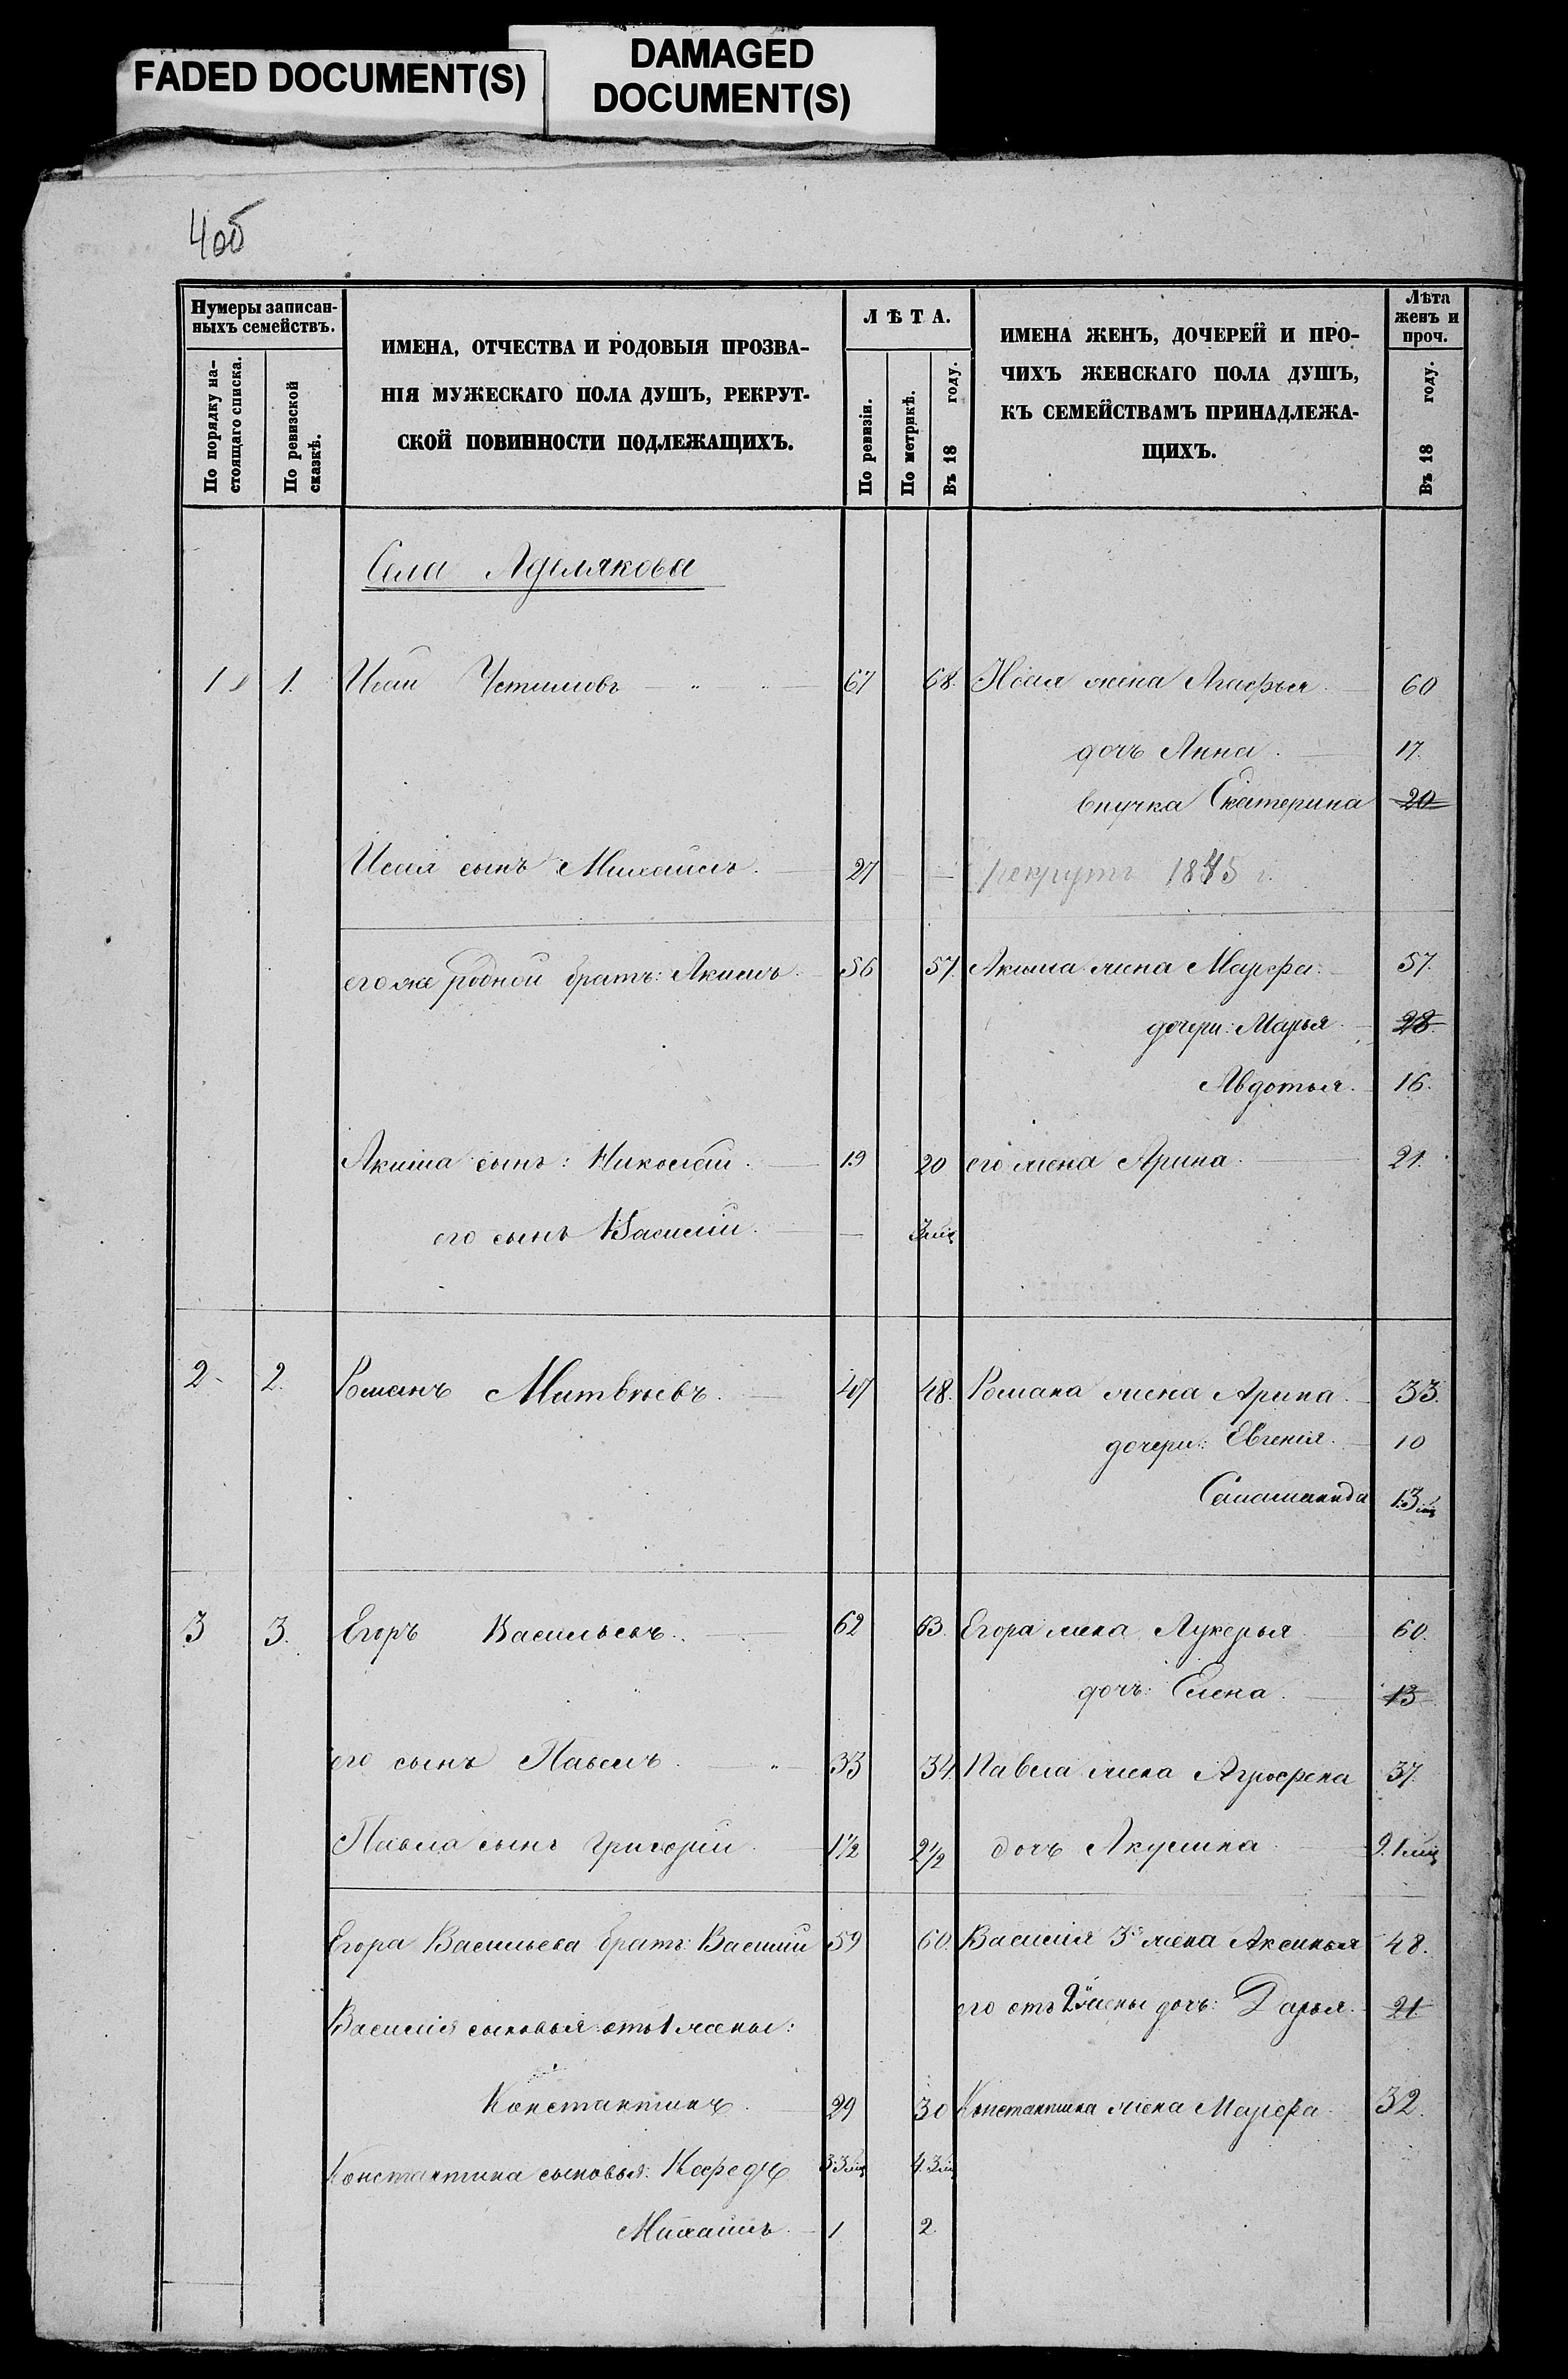 FADED DOCUMENT(S)
DAMAGED
DOCUMENT(S)
4об
Нумеры записан-
ныхъ семействъ.
По порядку на-
стоящаго списка.
По ревизской
сказкѣ.
ИМЕНА, ОТЧЕСТВА И РОДОВЫЯ ПРОЗВА-
НІЯ МУЖЕСКАГО ПОЛА ДУШЪ, РЕКРУТ-
СКОЙ ПОВИННОСТИ ПОДЛЕЖАЩИХЪ.
ЛѢТА.
По ревизіи.
По метрикѣ.
Въ 18 году.
ИМЕНА ЖЕНЪ, ДОЧЕРЕЙ И ПРО-
ЧИХЪ ЖЕНСКАГО ПОЛА ДУШЪ,
КЪ СЕМЕЙСТВАМЪ ПРИНАДЛЕЖА-
ЩИХЪ.
Лѣта
женъ и
проч.
Въ 18 году.
Села Аделякова
1 1. Исай Устимовъ 67 68. Исая жена Агафья 60
дочь Анна. 17.
внучка Екатерина 20
Исая сынъ Михаилъ. 27 — рекрутъ г.
его же родной братъ: Акимъ. 56 57. Акима жена Марфа. 57.
дочери: Марья. 28.
Авдотья. 16.
Акима сынъ: Николай. 19 20 его жена Арина. 21.
его сынъ Василій. — 3 мц
2. 2. Романъ Матвѣевъ. 47 48. Романа жена Арина. 33.
дочери: Евгенія. 10
Саламанида 1.3 мц
3 3. Егоръ Васильевъ. 62 63. Егора жена Лукерья 60.
дочь: Елена. 13
его сынъ Павелъ. 33 34. Павла жена Агрофена 37.
Павла сынъ Григорій. 1½ 2½ дочь Акулина 9.1 мц
Егора Васильева братъ: Василій 59 60. Василія 3я жена Аксинья 48.
его отъ 2й жены дочь: Дарья. 21
Василія сыновья отъ 1 жены:
Константинъ. 29 30 Константина жена Марфа 32.
Константина сыновья: 3.3 мц 4.3 мц
Михаилъ. 1 2.